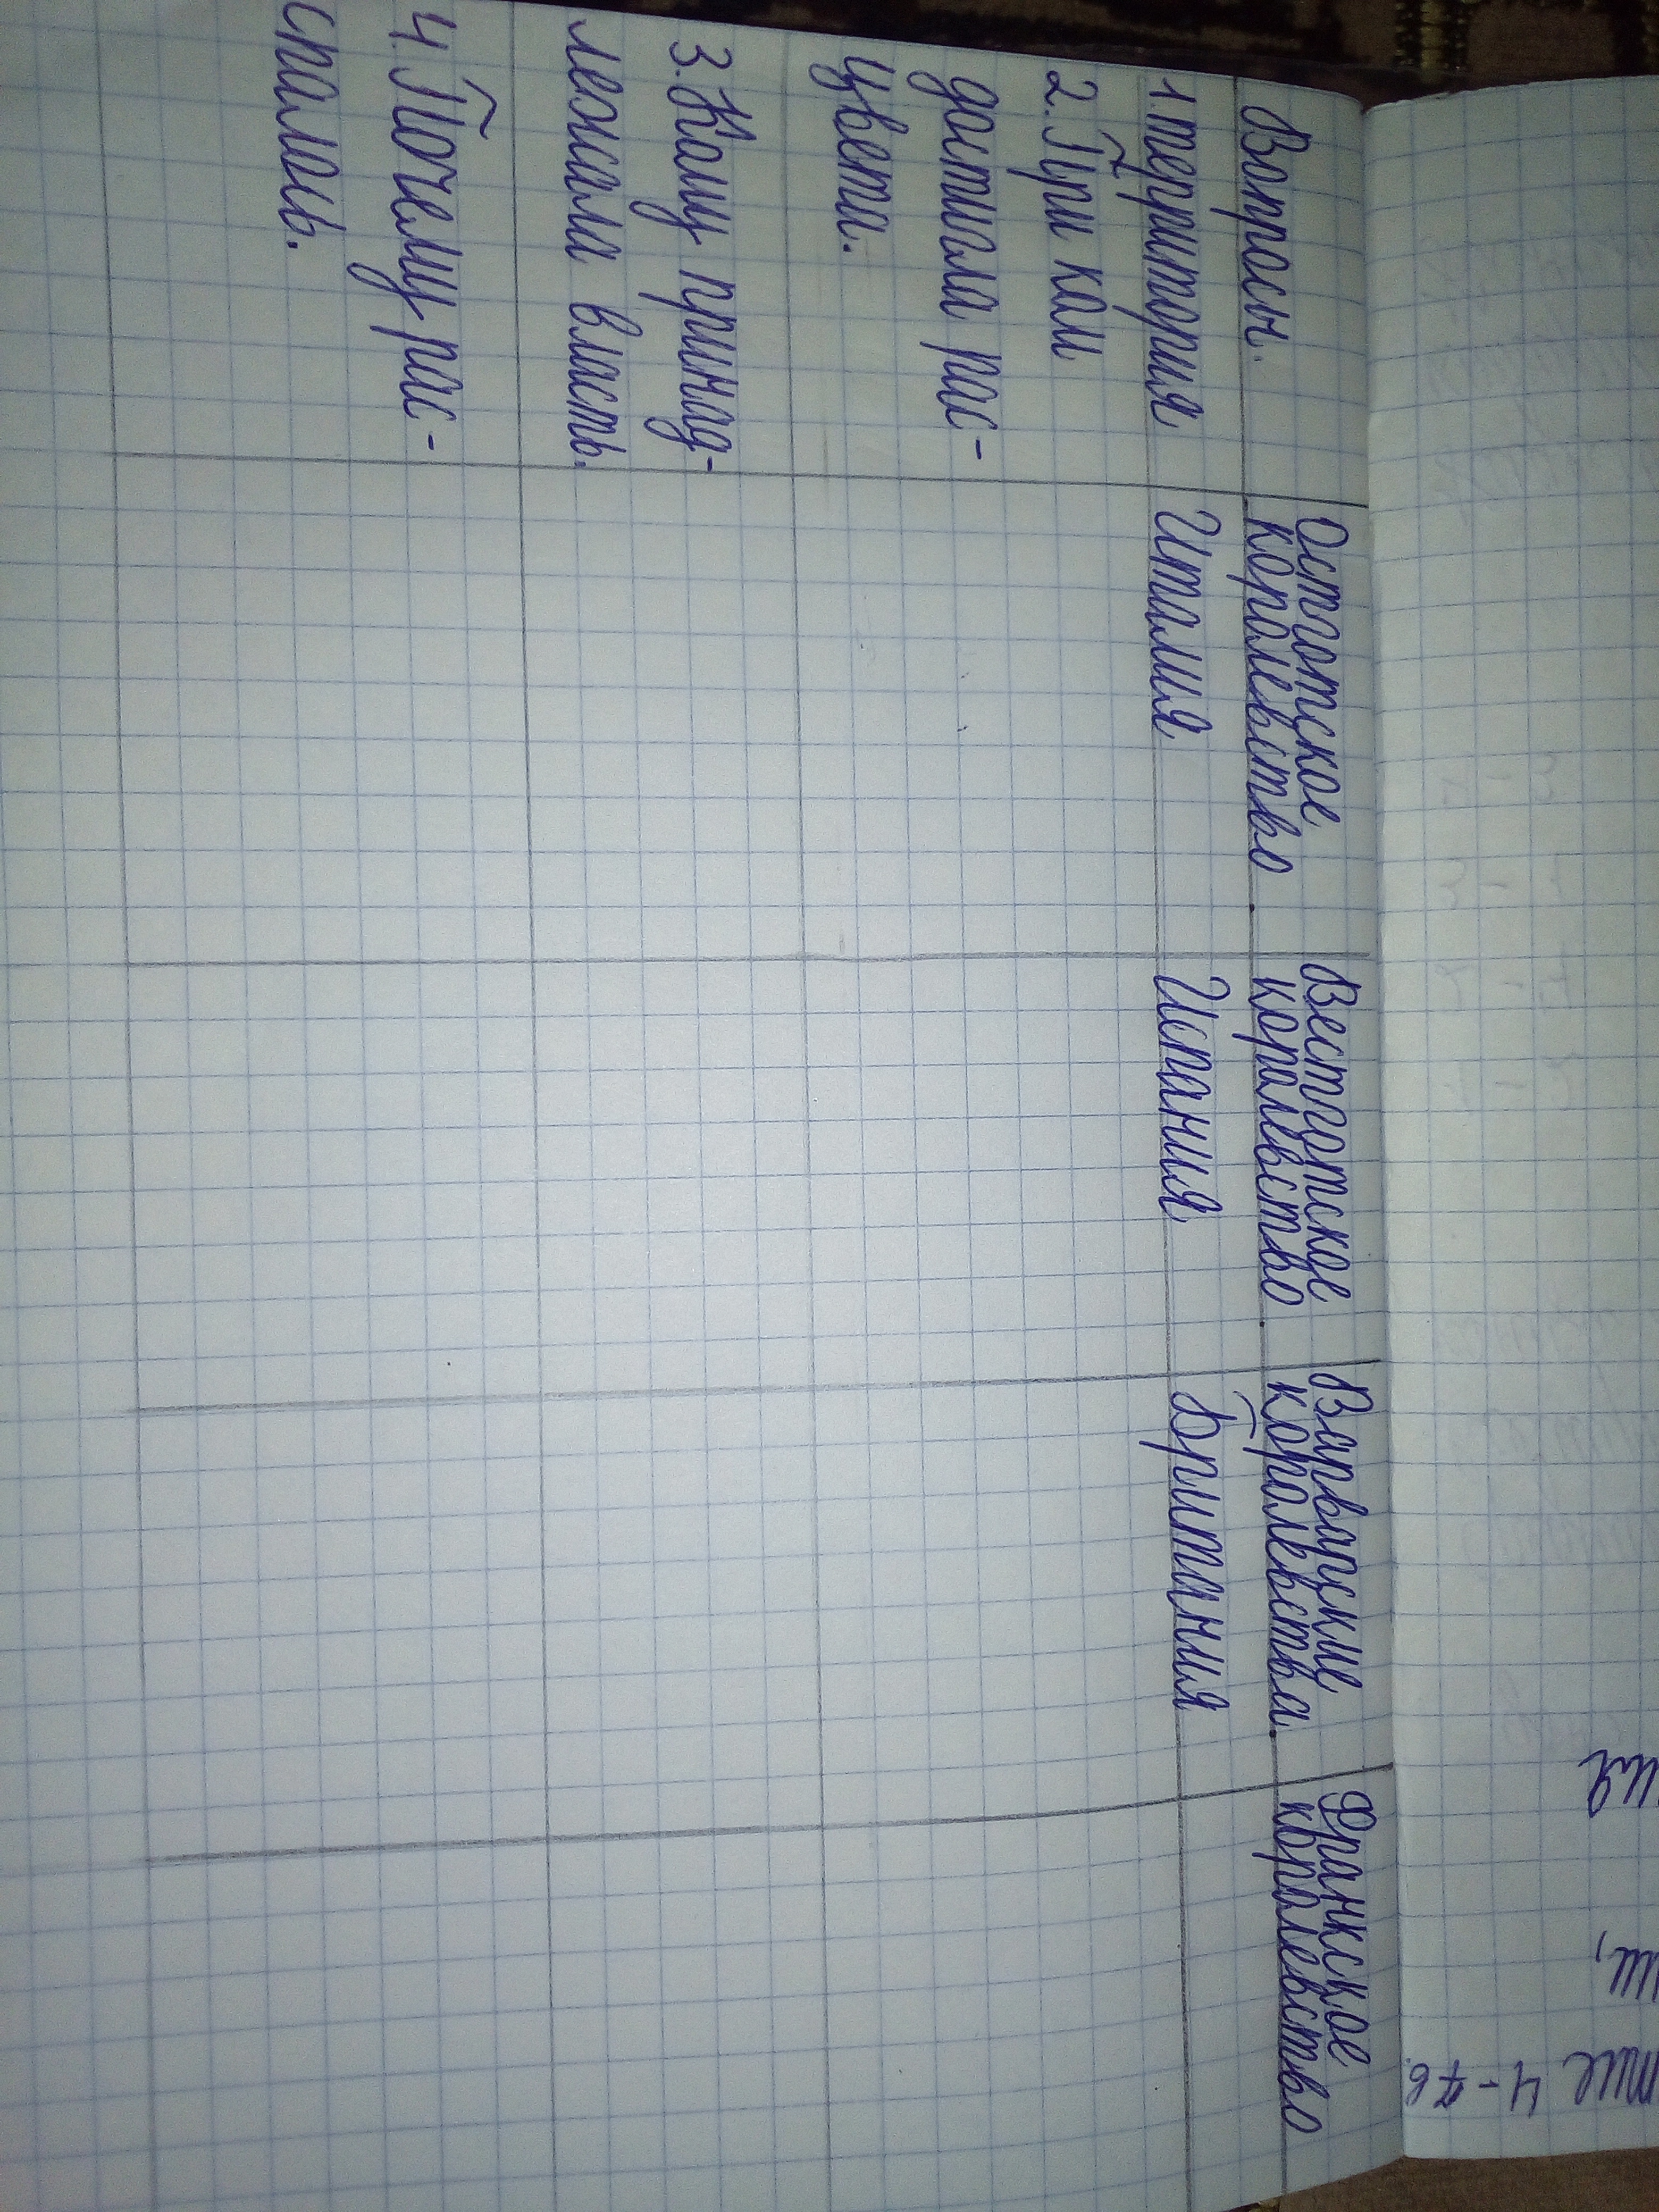 Вопросы.
Остготское
королевство
Вестготское
королевство
Варварские
королевства.
Франкское
королевство
1.территория
Италия
Испания
Британия
2. При ком
достигла рас-
цвета.
3. Кому принад-
лежала власть.
4. Почему рас-
спалась.
ия
ии,
тие 4-7в.